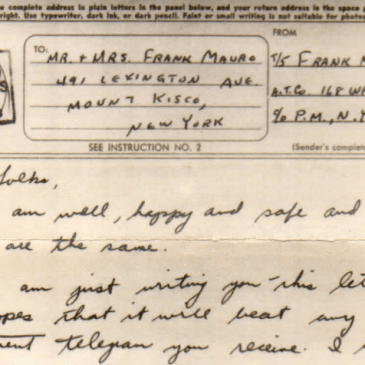 complete address in plain letters in the panel below, and your return address in the space
right. Use typewriter, dark ink, or dark pencil. Faint or small writing is not suitable for photo
FROM
TO:
MR. + MRS. FRANK MAURO
491 LEXINGTON AVE.
MOUNT KISCO,
NEW YORK
T/5 FRANK M
A.T.Co. 168
% P.M., N.Y
SEE INSTRUCTION NO. 2
(Sender's complet
folks,
am well, happy and safe and
are the same.
am just writing you this let
opes that it will beat any
ment telegram you receive. I